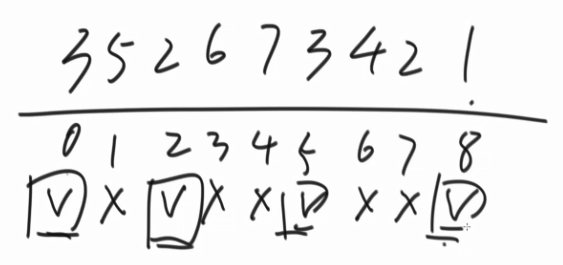 3 5 2 6 7 3 4 2 1
0 1 2 3 4 5 6 7 8
V X V X X V X X V